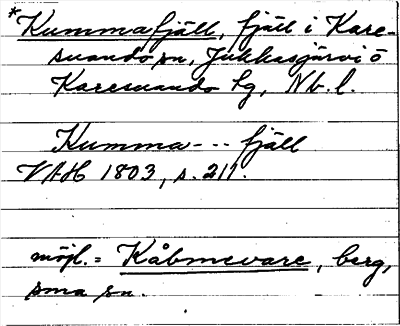 *Kummafjäll, fjäll i Kare-
suando sn, Jukkasjärvi o
Karesuando tg, Nb. l.
Kumma--- fjäll
VAH 1803, s. 211.
möjl. = Kåbmevare, berg,
sma sn.